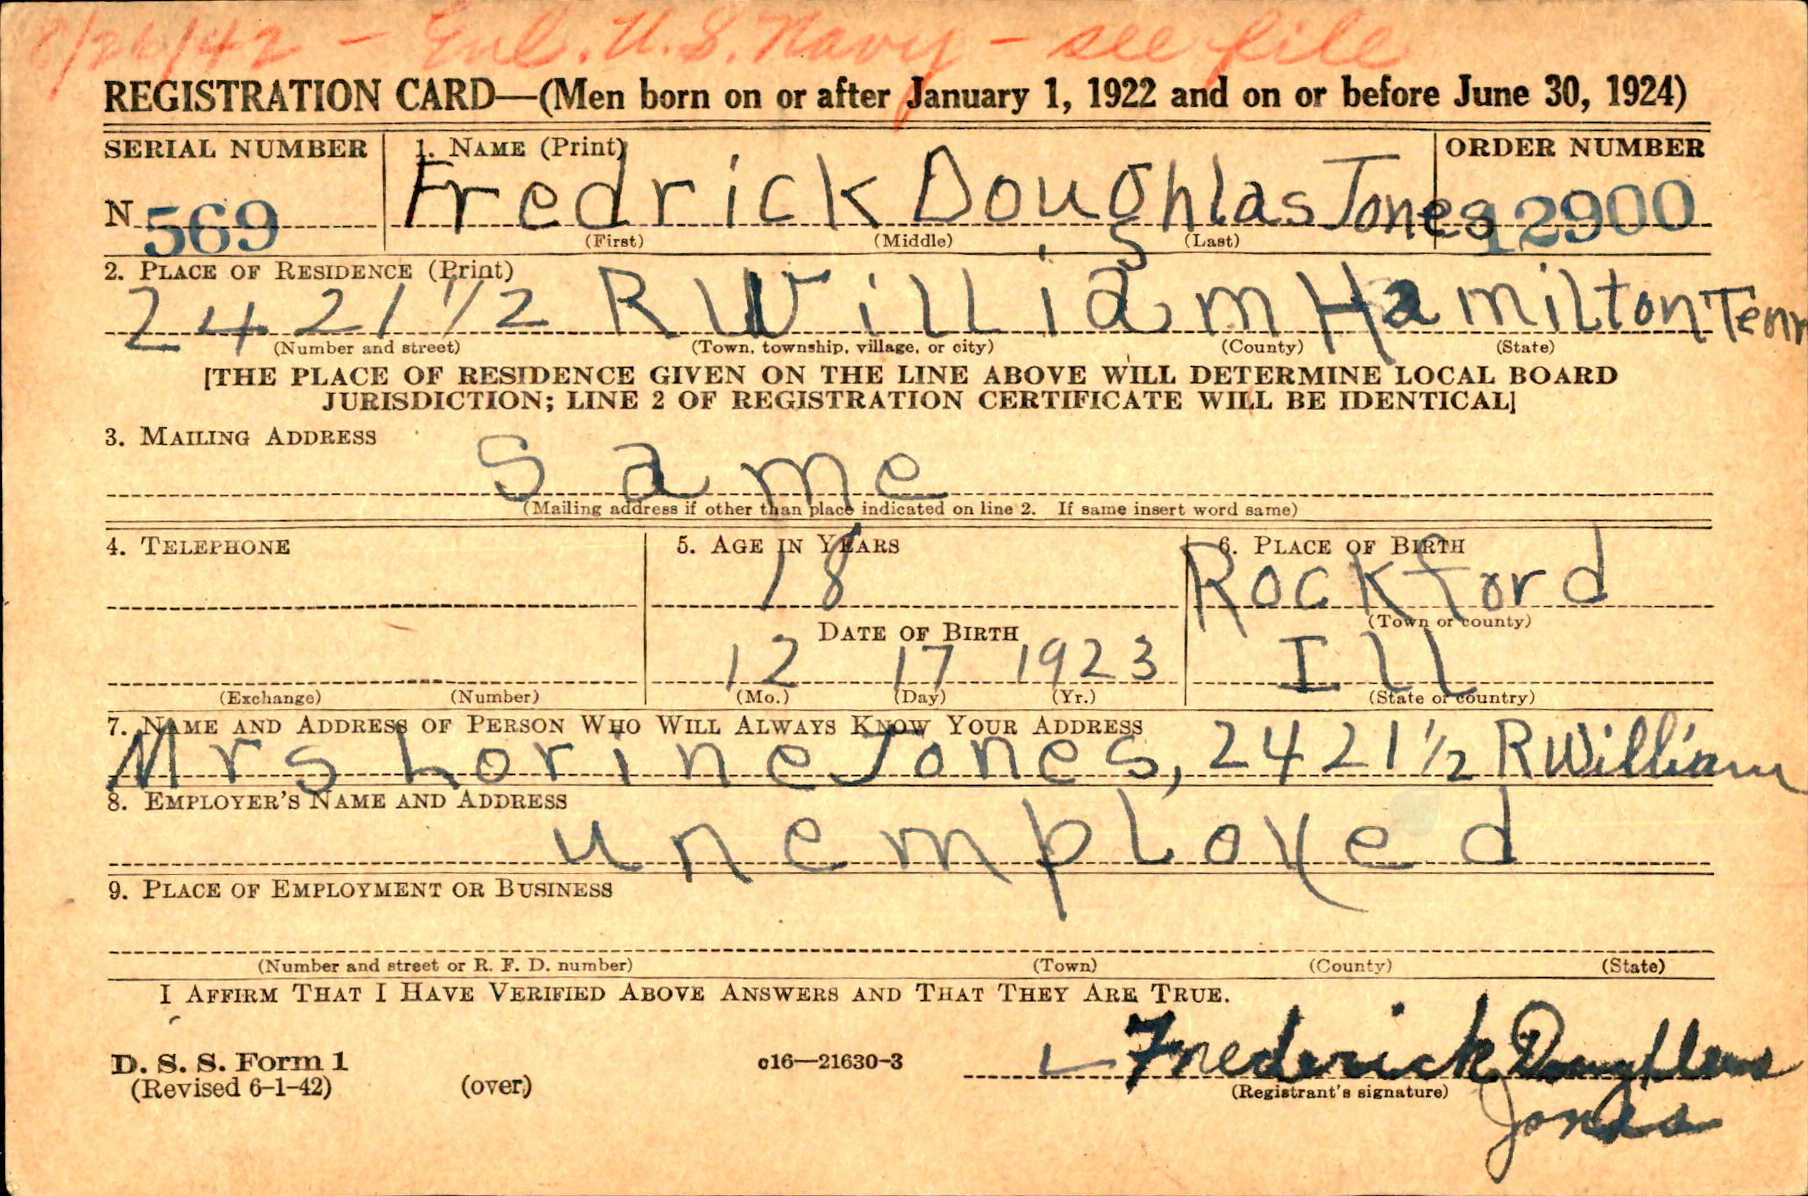 8/26/42 - Enl. U.S. Navy - see file
REGISTRATION CARD—(Men born on or after January 1, 1922 and on or before June 30, 1924)
SERIAL NUMBER 1. NAME (Print) ORDER NUMBER
N 569 Fredrick Doughlas Jones 12900
(First) (Middle) (Last)
2. PLACE OF RESIDENCE (Print) S
2421 1/2 R William Hamilton Tenn
(Number and street) (Town, township, village, or city) (County) (State)
[THE PLACE OF RESIDENCE GIVEN ON THE LINE ABOVE WILL DETERMINE LOCAL BOARD
JURISDICTION; LINE 2 OF REGISTRATION CERTIFICATE WILL BE IDENTICAL]
3. MAILING ADDRESS
Same
(Mailing address if other than place indicated on line 2. If same insert word same)
4. TELEPHONE 5. AGE IN YEARS 6. PLACE OF BIRTH
18 Rockford
(Town or county)
DATE OF BIRTH
12 17 1923 Ill
(Exchange) (Number) (Mo.) (Day) (Yr.) (State or country)
7. NAME AND ADDRESS OF PERSON WHO WILL ALWAYS KNOW YOUR ADDRESS
Mrs Lorine Jones, 2421 1/2 R William
8. EMPLOYER'S NAME AND ADDRESS
unemployed
9. PLACE OF EMPLOYMENT OR BUSINESS
(Number and street or R. F. D. number) (Town) (County) (State)
I AFFIRM THAT I HAVE VERIFIED ABOVE ANSWERS AND THAT THEY ARE TRUE.
D. S. S. Form 1 c16—21630-3 Frederick Doughlas
(Revised 6-1-42) (over) (Registrant's signature)
Jones